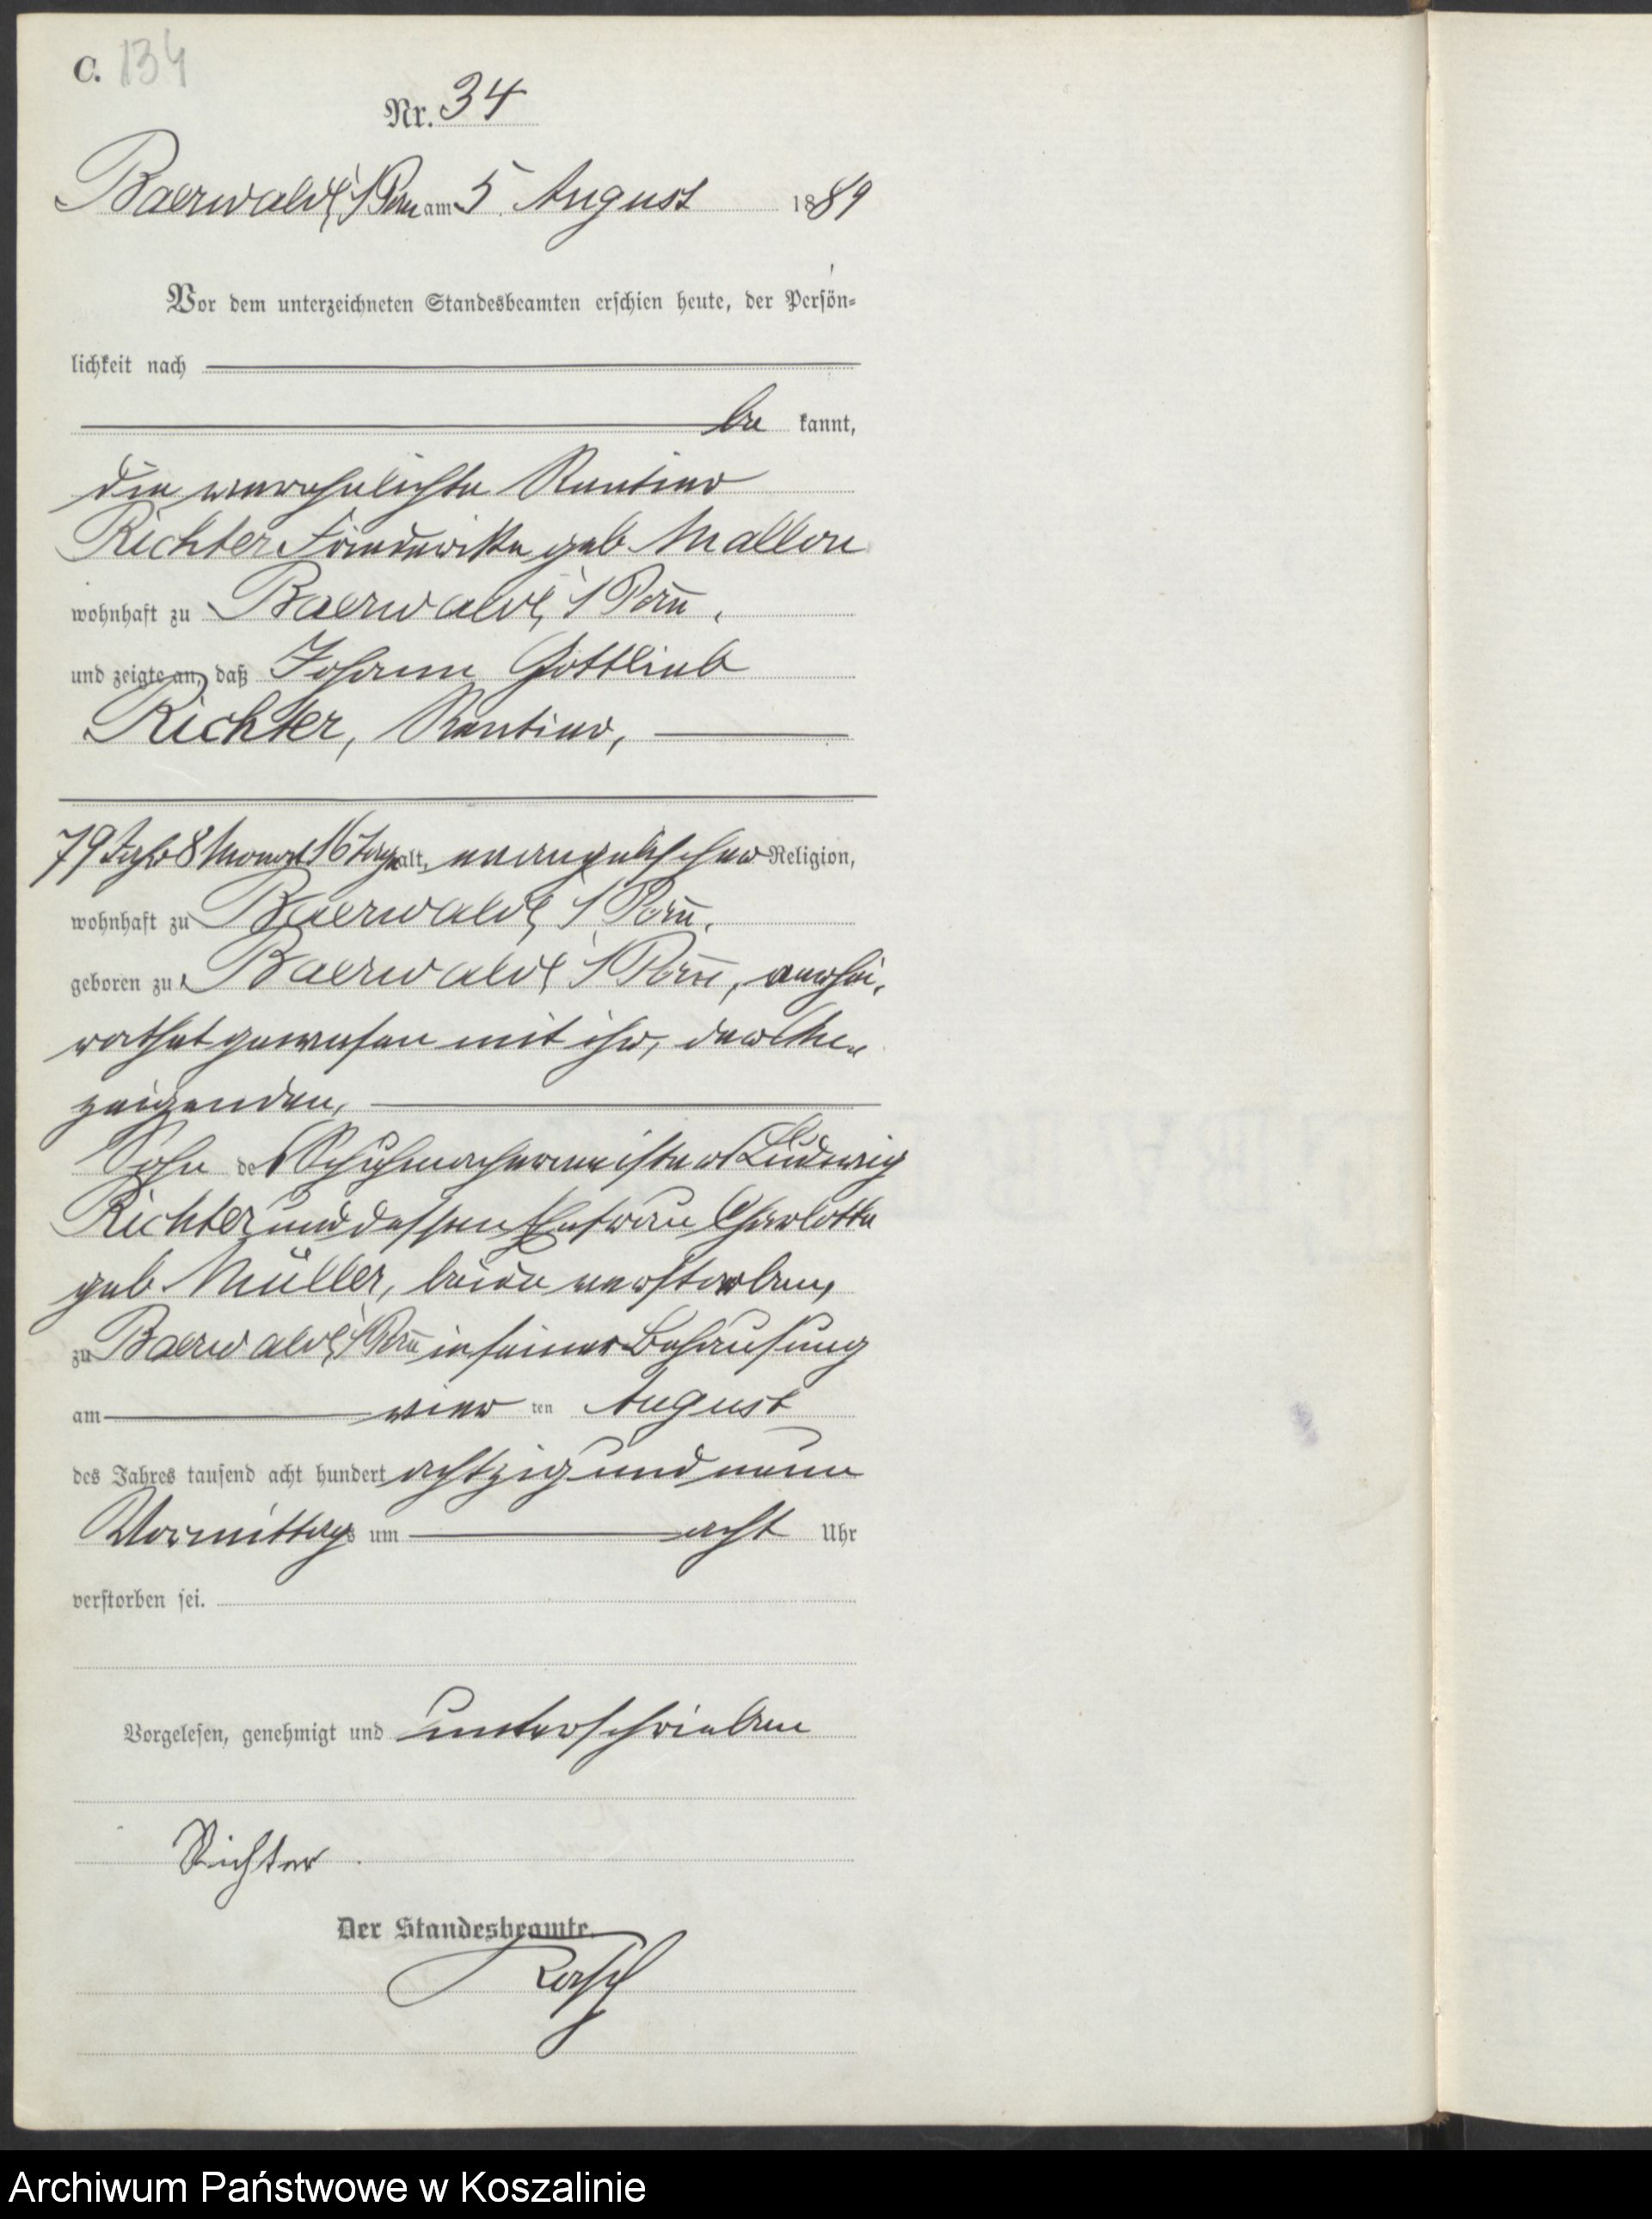 C. 134
Nr. 34
Baerwalde i/Pom am 5. August 1889
Vor dem unterzeichneten Standesbeamten erschien heute, der Persön-
lichkeit nach
be kannt,
die verehelichte Rentier
Richter Friederikke geb. Mallon
wohnhaft zu Baerwalde i/Pom.
und zeigte an, daß Johann Gottlieb
Richter, Rentier,
79 Jahr 8 Monat 16 Tage alt, evangelischer Religion,
wohnhaft zu Baerwalde i/Pom.
geboren zu Baerwalde i/Pom, verhei-
rathet gewesen mit ihr, der An-
zeigenden,
Sohn des Schuhmachermeisters Ludwig
Richter und dessen Ehefrau Charlotte
geb. Müller, beide verstorben,
zu Baerwalde i/Pom in seiner Behausung
am vier ten August
des Jahres tausend acht hundert achtzig und neun
Vormittags um acht Uhr
verstorben sei.
Vorgelesen, genehmigt und unterschrieben
Richter
Der Standesbeamte.
Archiwum Państwowe w Koszalinie